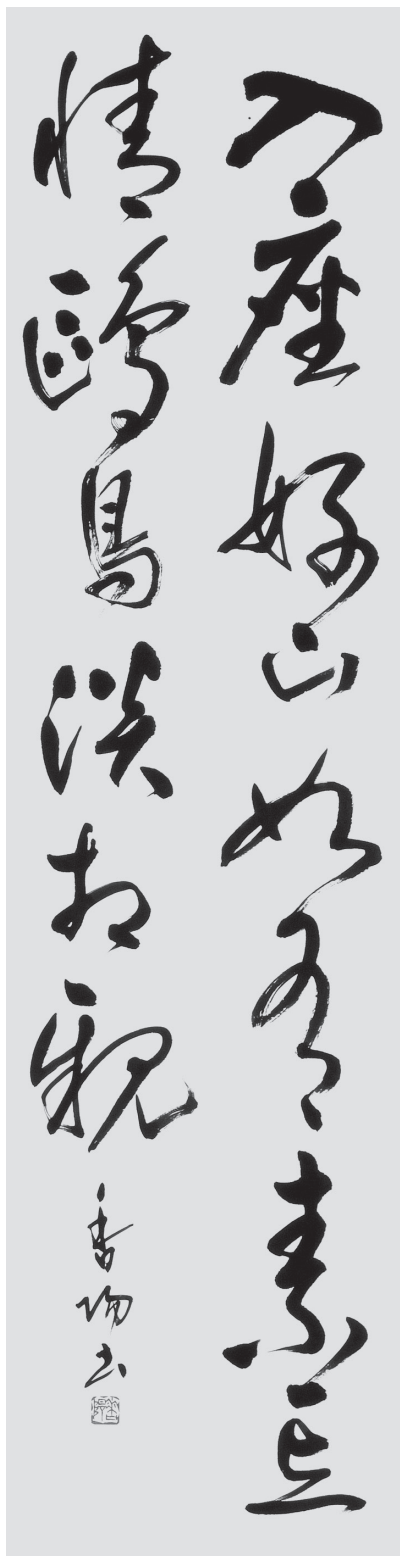 入座好山如有素忘
情鷗鳥淡相親 香陽書